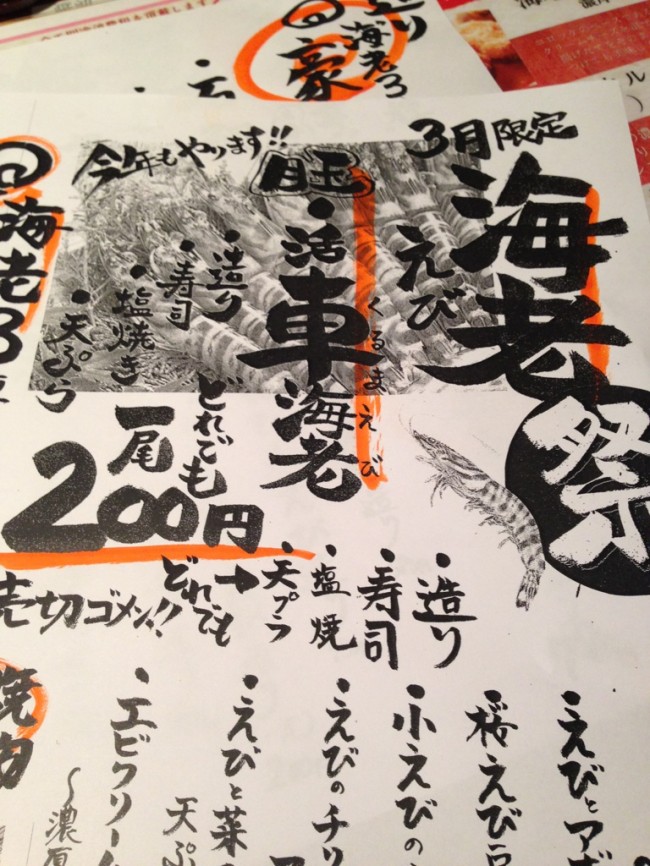 3月限定
海老祭
えび
今年もやります!!
目玉
・活車海老
くるまえび
・造り
・寿司
・塩焼き
・天ぷら
どれでも
一尾
200円
売切ゴメン!!
・造り
・寿司
・塩焼
・天プラ
→どれでも
・えびとア
・桜えび
・小えびの
・えびのチリ
・えびと菜
天ぷ
・エビクリーム
〜濃厚
海老3
焼肉
造り
海老3
豪